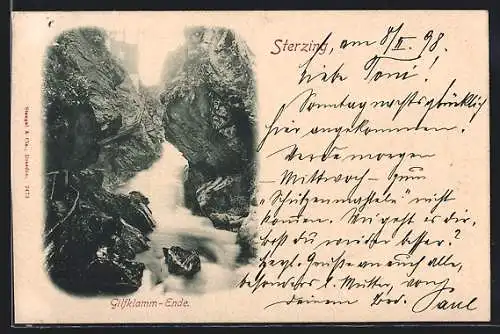 Sterzing, am 8/II. 98.
Liebe Toni!
Sonntag nachts glücklich
hier angekommen.
Werde morgen
– Mittwoch – zum
"Schützenmartele" nicht
kommen. Wie geht es dir,
bist du wieder besser?
Herzl. Grüße an euch alle,
besonders d. Mutter, von
deinem Bro. Paul
Gilfklamm-Ende.
Stengel & Co., Dresden.